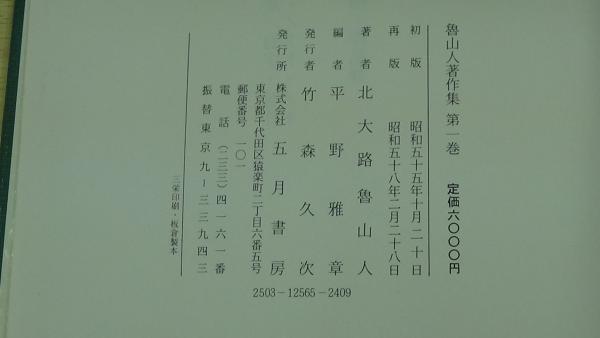 魯山人著作集 第一巻 定価六〇〇〇円
初版 昭和五十五年十月二十日
再版 昭和五十八年二月二十八日
著者 北大路魯山人
編者 平野雅章
発行者 竹森久次
発行所 株式会社 五月書房
東京都千代田区猿楽町二丁目六番五号
郵便番号 一〇一
電話 (二三三)四一六一番
振替東京九-三三九四三
三栄印刷・板倉製本
2503-12565-2409